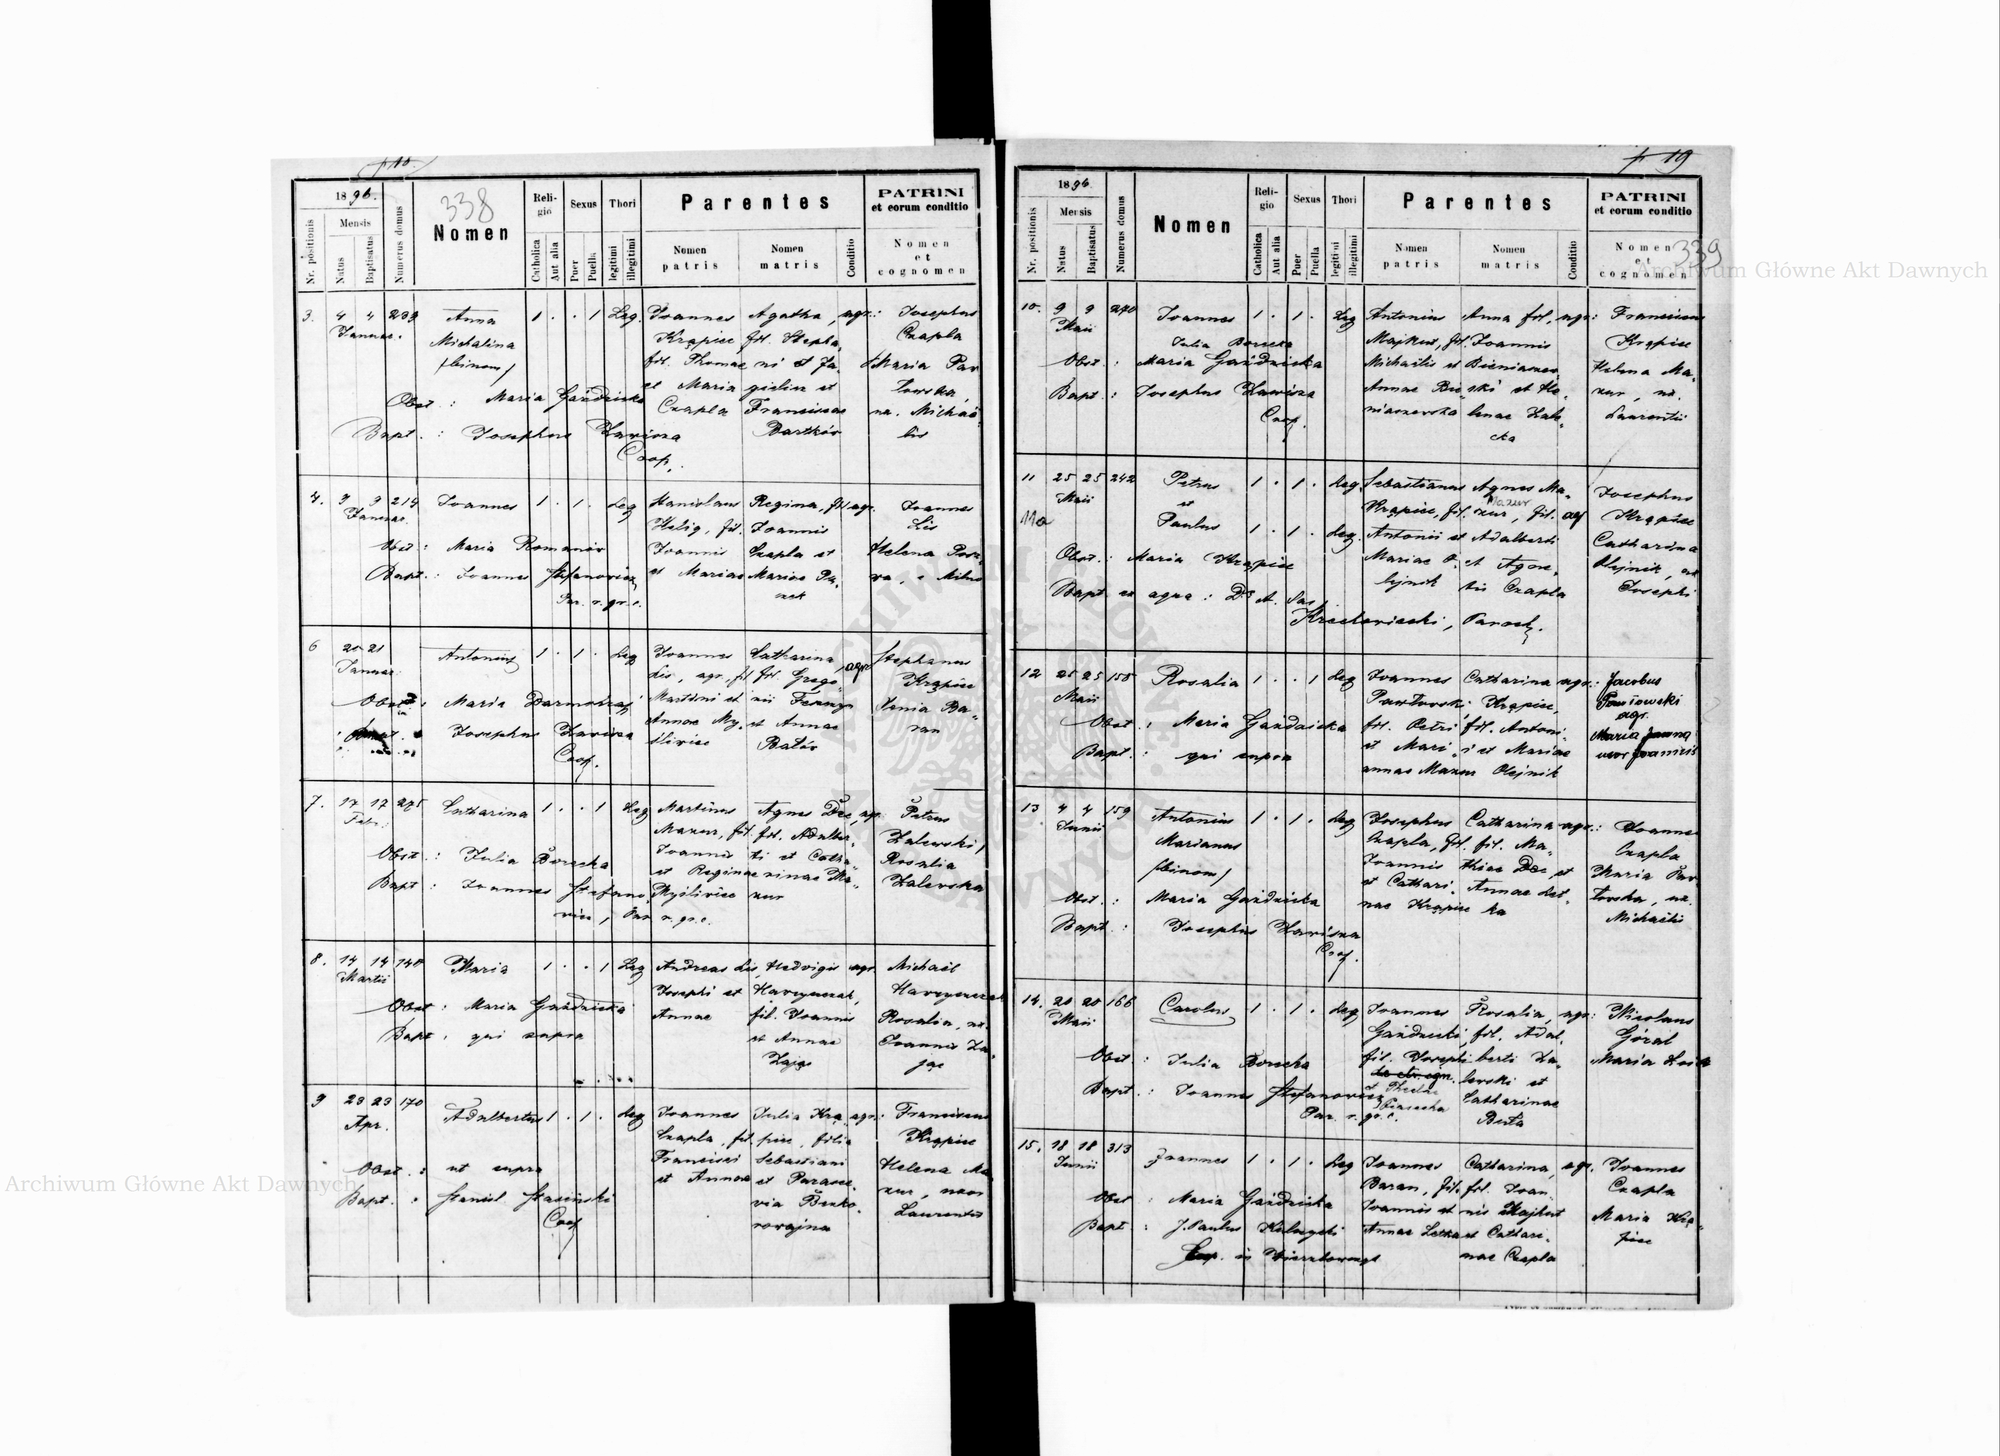 338
1896.
Nr. positionis
Mensis
Natus
Baptisatus
Numerus domus
Nomen
Religio
Catholica
Aut alia
Sexus
Puer
Puella
Thori
legitimi
illegitimi
Parentes
Nomen patris
Nomen matris
Conditio
PATRINI
et eorum conditio
Nomen
et
cognomen
3. 4 4 239 Anna 1 . . 1 Leg. Joannes Agatha, agr.: Josephus
Januar. Michalina Krąpiec fil. Stepha- Czapla
/binom/ fil. Thomae ni et Ja- Maria Paw
Obst.: Maria Gaździcka et Maria gielicz et łowska,
Czapla Franciscae ux. Michaë-
Bapt.: Josephus Zawisza Bartków lis
Coop.
4. 9 9 214 Joannes 1 . 1 . Leg Stanislaus Regina, fil. agr. Joannes
Januar. Helig, fil. Joannis Lis
Obst: Maria Romanów Joannis Czapla et Helena
Bapt.: Joannes Stefanowicz et Mariae Mariae
Par. r. gr. c.
6 20 21 Antonius 1 . 1 . Leg Joannes Catharina, agr Stephanus
Januar. Lis, agr., fil fil. Grego- Krąpiec
Obst: Maria Martini et rii Xenia Ba-
Josephus Zawisza Annae My- et Annae ran
Coop. śliwiec Batów
7. 17 17 275 Catharina 1 . . 1 Leg Martinus Agnes Dec, agr. Petrus
Febr. Mazur, fil. fil. Adalber- Zalewski,
Obst.: Julia Borecka Joannis ti et Catha- Rosalia
Bapt: Joannes Stefano- et Reginae rinae Ma- Zalewska
wicz, Par r. gr. c. Myśliwiec zur
8. 14 14 148 Maria 1 . . 1 Leg Andreas Lis, Hedvigis agr. Michaël
Martii Josephi et
Obst: Maria Gaździcka Annae fil. Joannis Rosalia, ux.
Bapt. qui supra et Annae Joannis Za-
Zając jąc
9 23 23 170 Adalbertus 1 . 1 . Leg Joannes Julia Krą- agr.: Franciscus
Apr. Czapla, fil. piec, filia Krąpiec
Obst.: ut supra Francisci Sebastiani Helena Ma
Bapt.: Stanisl. Stasiński et Annae et Parasce- zur, uxor
Coop via Laurentii
19
339
1896.
Nr. positionis
Mensis
Natus
Baptisatus
Numerus domus
Nomen
Religio
Catholica
Aut alia
Sexus
Puer
Puella
Thori
legitimi
illegitimi
Parentes
Nomen patris
Nomen matris
Conditio
PATRINI
et eorum conditio
Nomen
et
cognomen
10. 9 9 240 Joannes 1 . 1 . Leg Antonius Anna fil., agr.: Franciscus
Maii Julia Borecka Majkut, fil. Joannis Krąpiec
Obst.: Maria Gaździcka Michaëlis et Bieniaszew- Helena Ma-
Bapt.: Josephus Zawisza Annae Bie- ski et He- zur, ux.
Coop. niaszewska lenae Zale- Laurentii
cka
11 25 25 242 Petrus 1 . 1 . Leg. Sebastianus Agnes Ma- Josephus
Maii et Krąpiec, fil. zur, fil. agr Krąpiec
11a Paulus 1 . 1 . Leg. Antonii et Adalberti Catharina
Obst.: Maria Krąpiec Mariae O- et Agne- Olejnik, ux
Bapt. ex aqua: lejnik tis Czapla Josephi
Paroch.
12 25 25 155 Rosalia 1 . . 1 Leg Joannes Catharina agr.: Jacobus
Maii Pawłowski, Krąpiec,
Obst.: Maria Gaździcka fil. Petri fil. Antoni- agr.
Bapt.: qui supra et Mari- i et Mariae Maria
annae Mazur Olejnik uxor Joannis
13 4 4 159 Antonius 1 . 1 . Leg Josephus Catharina agr.: Joannes
Junii Marianus Czapla, fil. fil. Ma- Czapla
/binom/ Joannis thiae Dec et Maria Paw-
Obst.: Maria Gaździcka et Cathari- Annae Let- łowska, ux.
Bapt: Josephus Zawisza nae Krąpiec ka Michaëlis
Coop.
14. 20 20 166 Carolus 1 . 1 . Leg Joannes Rosalia, agr: Nicolaus
Maii Gaździcki, fil. Adal- Góral
Obst: Julia Borecka fil. Josephi berti Za- Maria
Bapt.: Joannes Stefanowicz et Theclae lewski et
Par. r. gr. c. Catharinae
Buta
15. 18 18 313 Joannes 1 . 1 . Leg Joannes Catharina, agr. Joannes
Junii Baran, fil. fil. Joan- Czapla
Obst: Maria Gaździcka Joannis et nis Majkut Maria Krą-
Bapt: J. Paulus Annae Letka et Cathari- piec
nae Czapla
Archiwum Główne Akt Dawnych
Archiwum Główne Akt Dawnych
ARCHIWUM GŁÓWNE AKT DAWNYCH